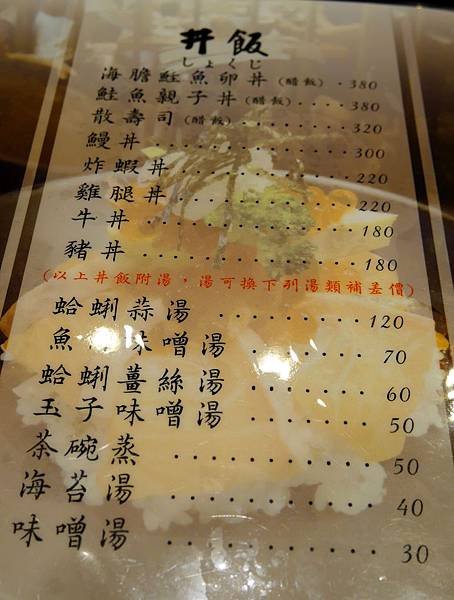 丼飯
しょくじ
海膽鮭魚卵丼(醋飯)‧380
鮭魚親子丼(醋飯)‧‧‧‧380
散壽司(醋飯)‧‧‧‧‧‧‧320
鰻丼‧‧‧‧‧‧‧‧‧‧‧‧300
炸蝦丼‧‧‧‧‧‧‧‧‧‧220
雞腿丼‧‧‧‧‧‧‧‧‧‧220
牛丼‧‧‧‧‧‧‧‧‧‧‧‧180
豬丼‧‧‧‧‧‧‧‧‧‧‧‧180
(以上丼飯附湯，湯可換下列湯類補差價)
蛤蜊蒜湯‧‧‧‧‧‧‧‧120
魚味噌湯‧‧‧‧‧‧70
蛤蜊薑絲湯‧‧‧‧‧‧60
玉子味噌湯‧‧‧‧‧‧50
茶碗蒸‧‧‧‧‧‧‧‧‧50
海苔湯‧‧‧‧‧‧‧‧‧40
味噌湯‧‧‧‧‧‧‧‧‧30